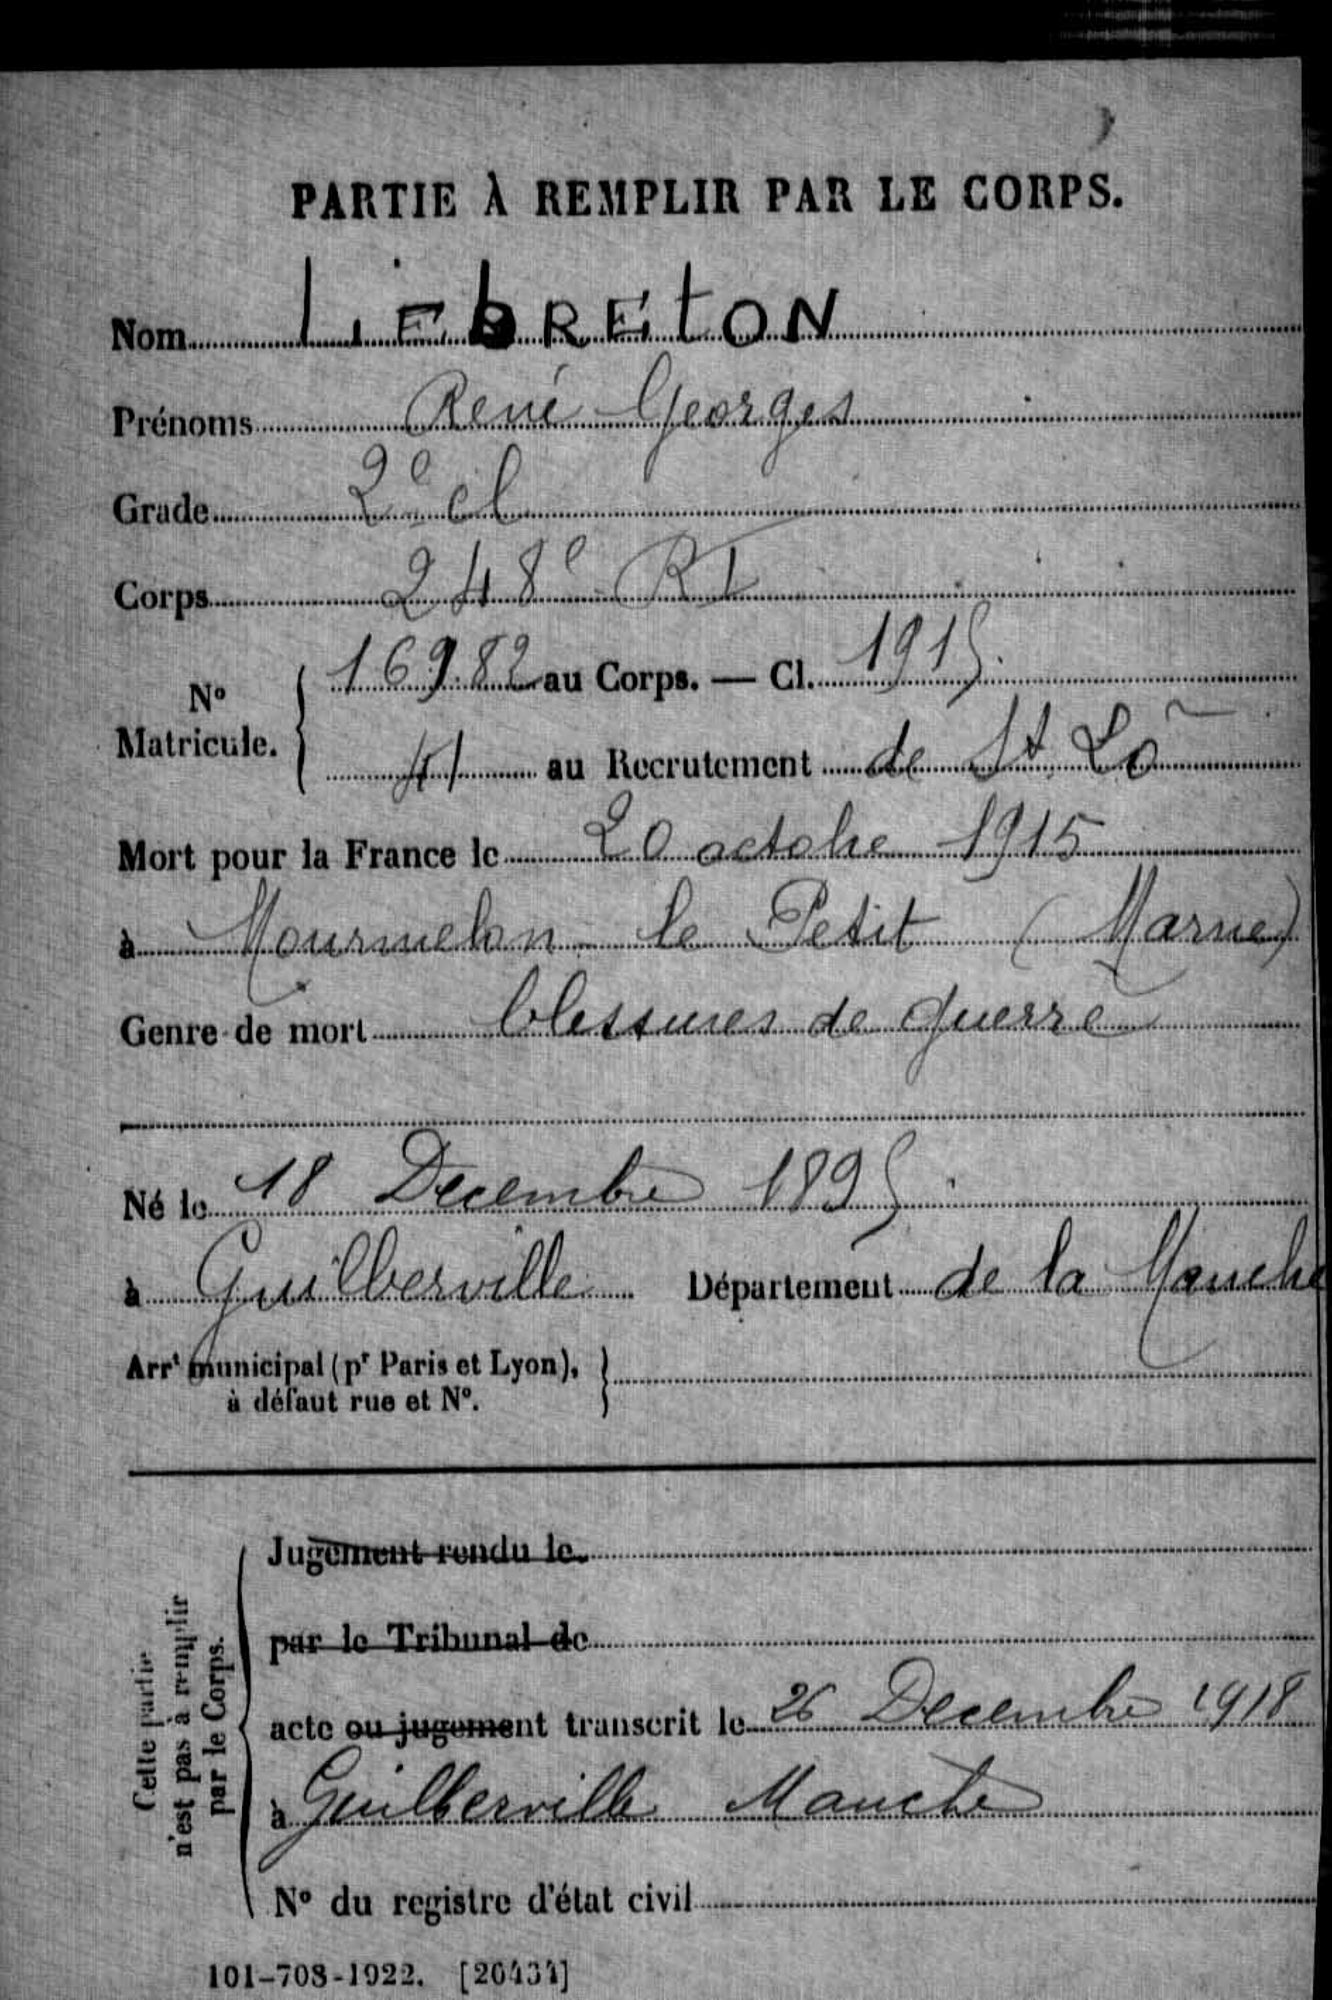 PARTIE À REMPLIR PAR LE CORPS.
Nom LEbREtON
Prénoms René Georges
Grade 2e cl
Corps 248e RI
No Matricule. 16982 au Corps. — Cl. 1915.
41 au Recrutement de St Lô
Mort pour la France le 20 octobre 1915
à Mourmelon le Petit (Marne)
Genre de mort blessures de guerre
Né le 18 Decembre 1895
à Guilberville Département de la Manche
Arrt municipal (pr Paris et Lyon),
à défaut rue et No.
Cette partie
n'est pas à remplir
par le Corps.
Jugement rendu le
par le Tribunal de
acte ou jugement transcrit le 26 Decembre 1918
à Guilberville Manche
No du registre d'état civil
101-708-1922. [26434]